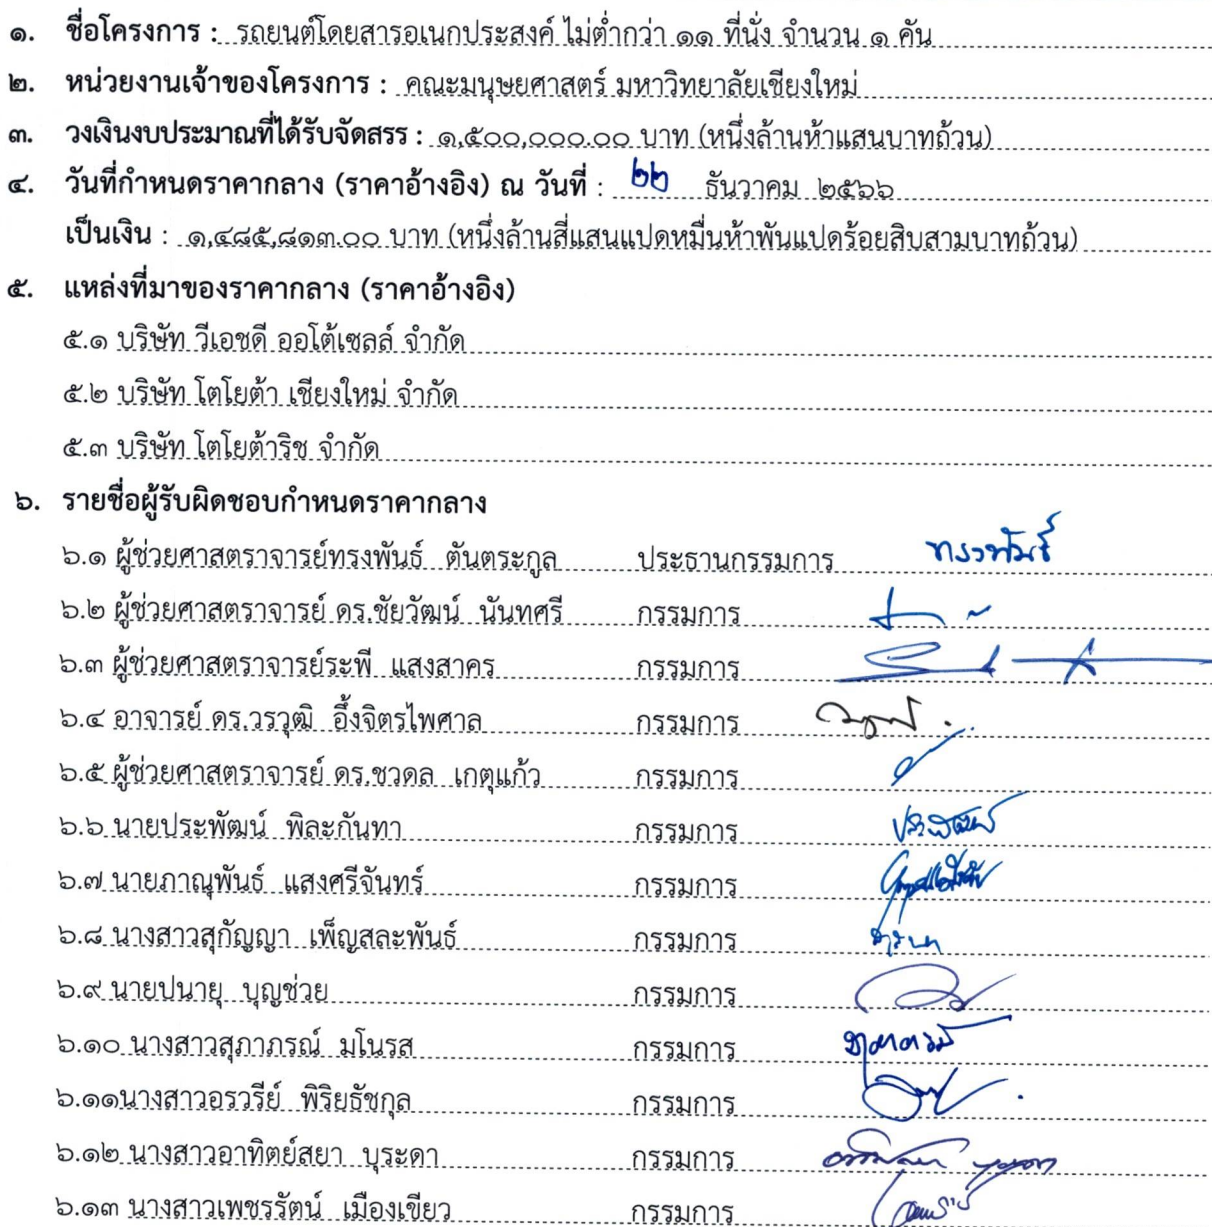 ๑. ชื่อโครงการ : รถยนต์โดยสารอเนกประสงค์ ไม่ต่ำกว่า ๑๑ ที่นั่ง จำนวน ๑ คัน
๒. หน่วยงานเจ้าของโครงการ : คณะมนุษยศาสตร์ มหาวิทยาลัยเชียงใหม่
๓. วงเงินงบประมาณที่ได้รับจัดสรร : ๑,๕๐๐,๐๐๐.๐๐ บาท (หนึ่งล้านห้าแสนบาทถ้วน)
๔. วันที่กำหนดราคากลาง (ราคาอ้างอิง) ณ วันที่ : ๒๒ ธันวาคม ๒๕๖๖
เป็นเงิน : ๑,๔๘๕,๘๑๓.๐๐ บาท (หนึ่งล้านสี่แสนแปดหมื่นห้าพันแปดร้อยสิบสามบาทถ้วน)
๕. แหล่งที่มาของราคากลาง (ราคาอ้างอิง)
๕.๑ บริษัท วีเอชดี ออโต้เซลล์ จำกัด
๕.๒ บริษัท โตโยต้า เชียงใหม่ จำกัด
๕.๓ บริษัท โตโยต้าริช จำกัด
๖. รายชื่อผู้รับผิดชอบกำหนดราคากลาง
๖.๑ ผู้ช่วยศาสตราจารย์ทรงพันธ์ ตันตระกูล ประธานกรรมการ ทรงพันธ์
๖.๒ ผู้ช่วยศาสตราจารย์ ดร.ชัยวัฒน์ นันทศรี กรรมการ
๖.๓ ผู้ช่วยศาสตราจารย์ระพี แสงสาคร กรรมการ
๖.๔ อาจารย์ ดร.วรวุฒิ อึ้งจิตรไพศาล กรรมการ
๖.๕ ผู้ช่วยศาสตราจารย์ ดร.ชวดล เกตุแก้ว กรรมการ
๖.๖ นายประพัฒน์ พิละกันทา กรรมการ
๖.๗ นายภาณุพันธ์ แสงศรีจันทร์ กรรมการ
๖.๘ นางสาวสุกัญญา เพ็ญสละพันธ์ กรรมการ
๖.๙ นายปนายุ บุญช่วย กรรมการ
๖.๑๐ นางสาวสุภาภรณ์ มโนรส กรรมการ
๖.๑๑นางสาวอรวรีย์ พิริยธัชกุล กรรมการ
๖.๑๒ นางสาวอาทิตย์สยา บุระดา กรรมการ
๖.๑๓ นางสาวเพชรรัตน์ เมืองเขียว กรรมการ